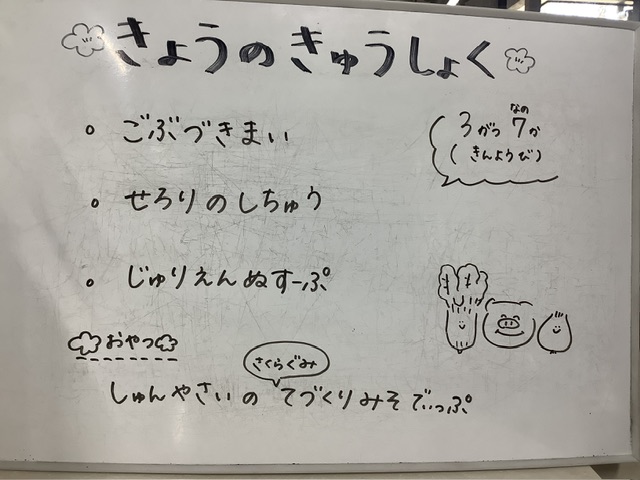 きょうのきゅうしょく
なの
3がつ7か
(きんようび)
・ごぶづきまい
・せろりのしちゅう
・じゅりえんぬすーぷ
おやつ
さくらぐみ
しゅんやさいのてづくりみそでぃっぷ